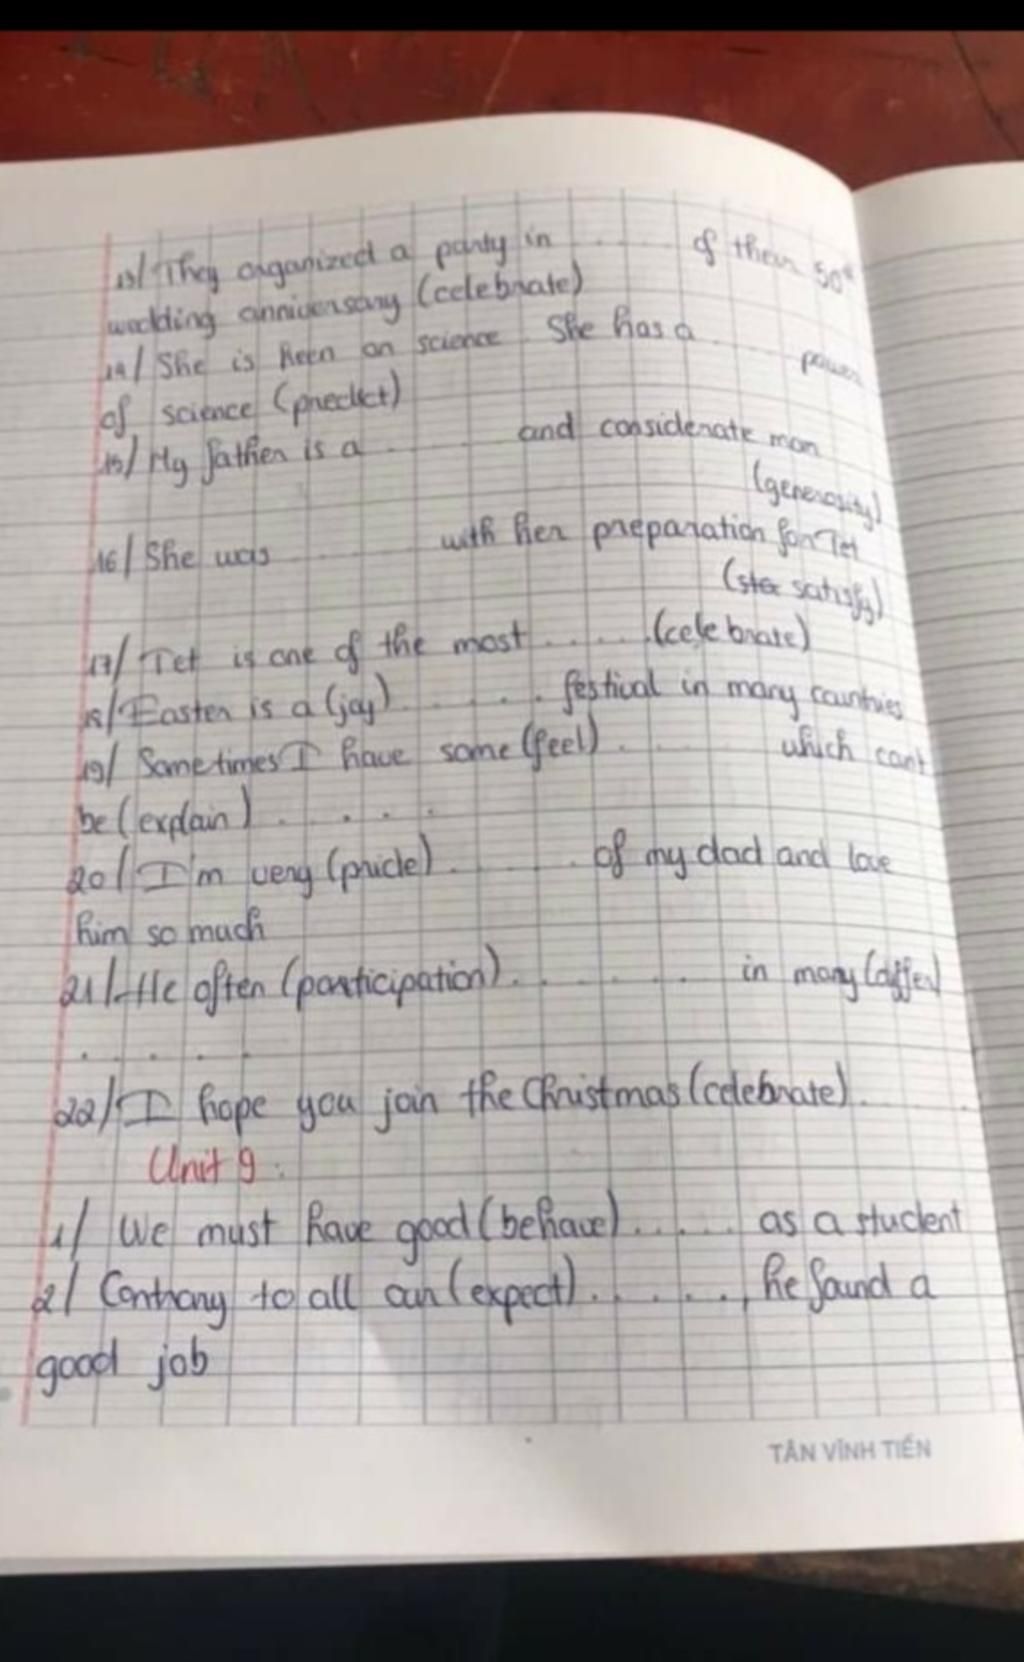 13/ They organized a party in ........ of their 50th
wedding anniversary (celebrate)
14/ She is keen on science. She has a ........ power
of science (predict)
15/ My father is a ........ and considerate man
(generosity)
16/ She was ........ with her preparation for Tet
(satisfy)
17/ Tet is one of the most ........ (celebrate)
18/ Easter is a (joy) ........ festival in many countries
19/ Sometimes I have some (feel) ........ which can't
be (explain) ........
20/ I'm very (pride) ........ of my dad and love
him so much
21/ He often (participation) ........ in many (differ)
........
22/ I hope you join the Christmas (celebrate) ........
Unit 9:
1/ We must have good (behave) ........ as a student
2/ Contrary to all our (expect) ........, he found a
good job
TÂN VĨNH TIẾN